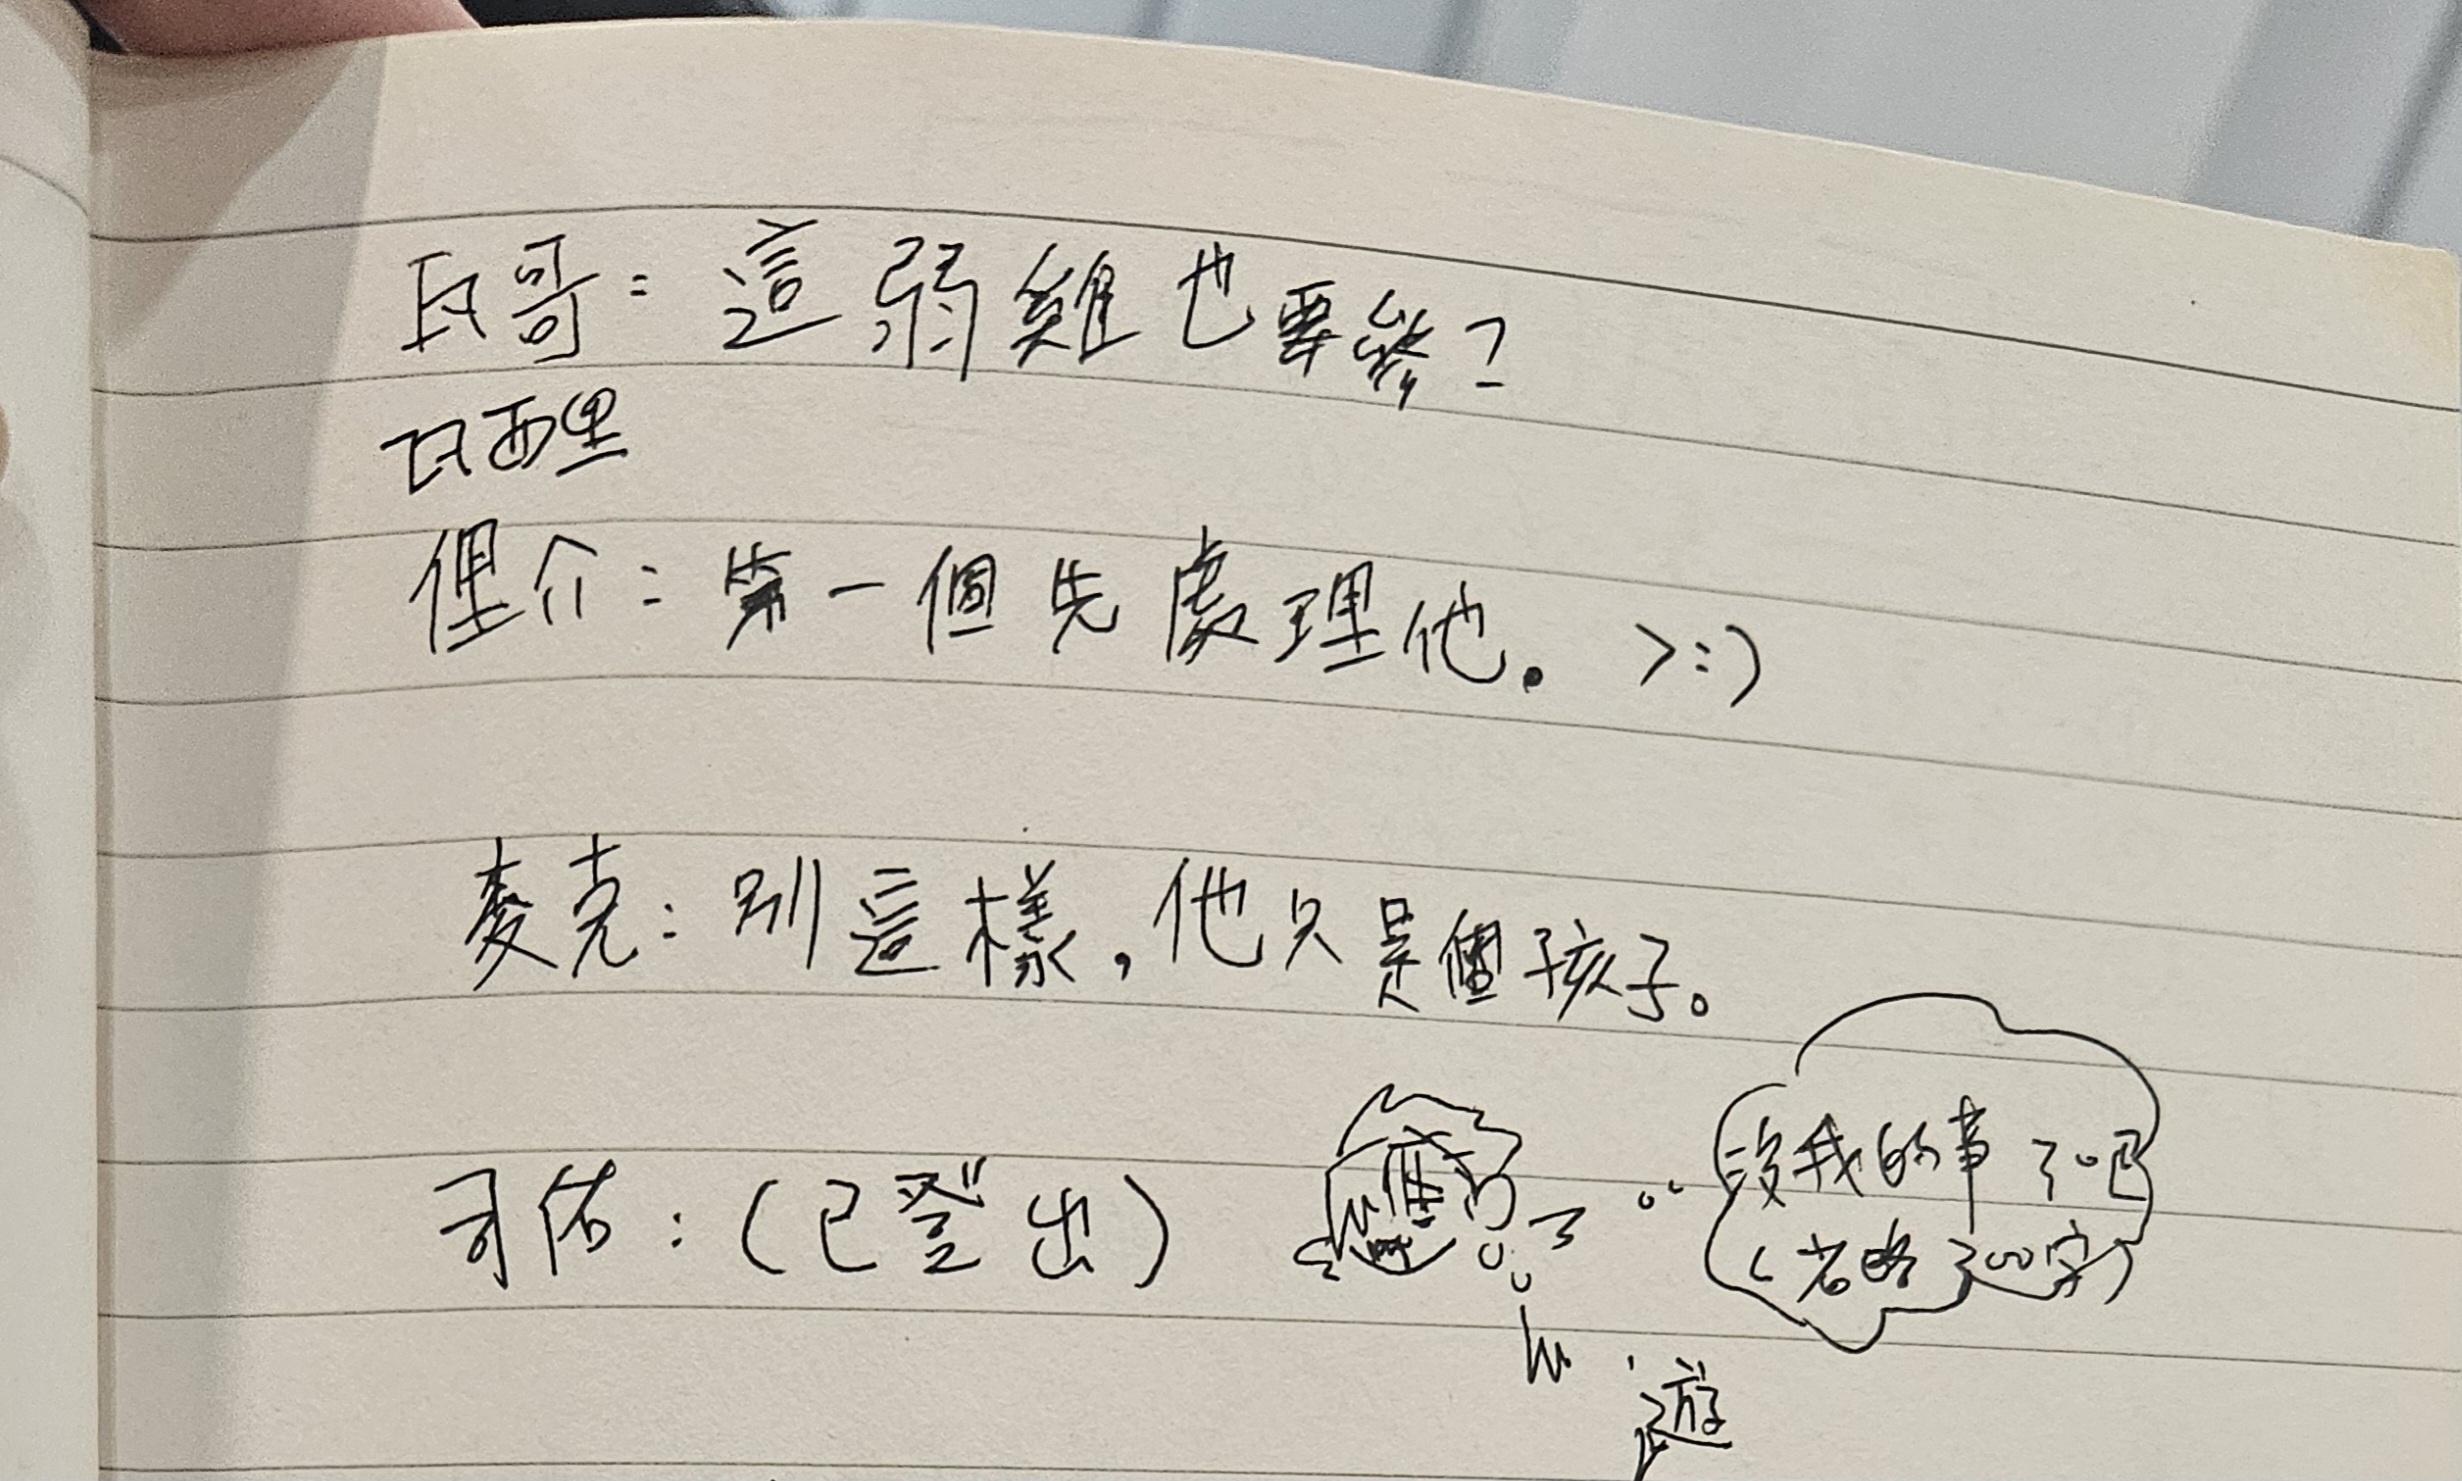 瓦哥：這弱雞也要參？
瓦西里
俚介：第一個先處理他。>:)
麥克：別這樣，他只是個孩子。
司佑：(已登出)
沒我的事了吧
(省略300字)
遊